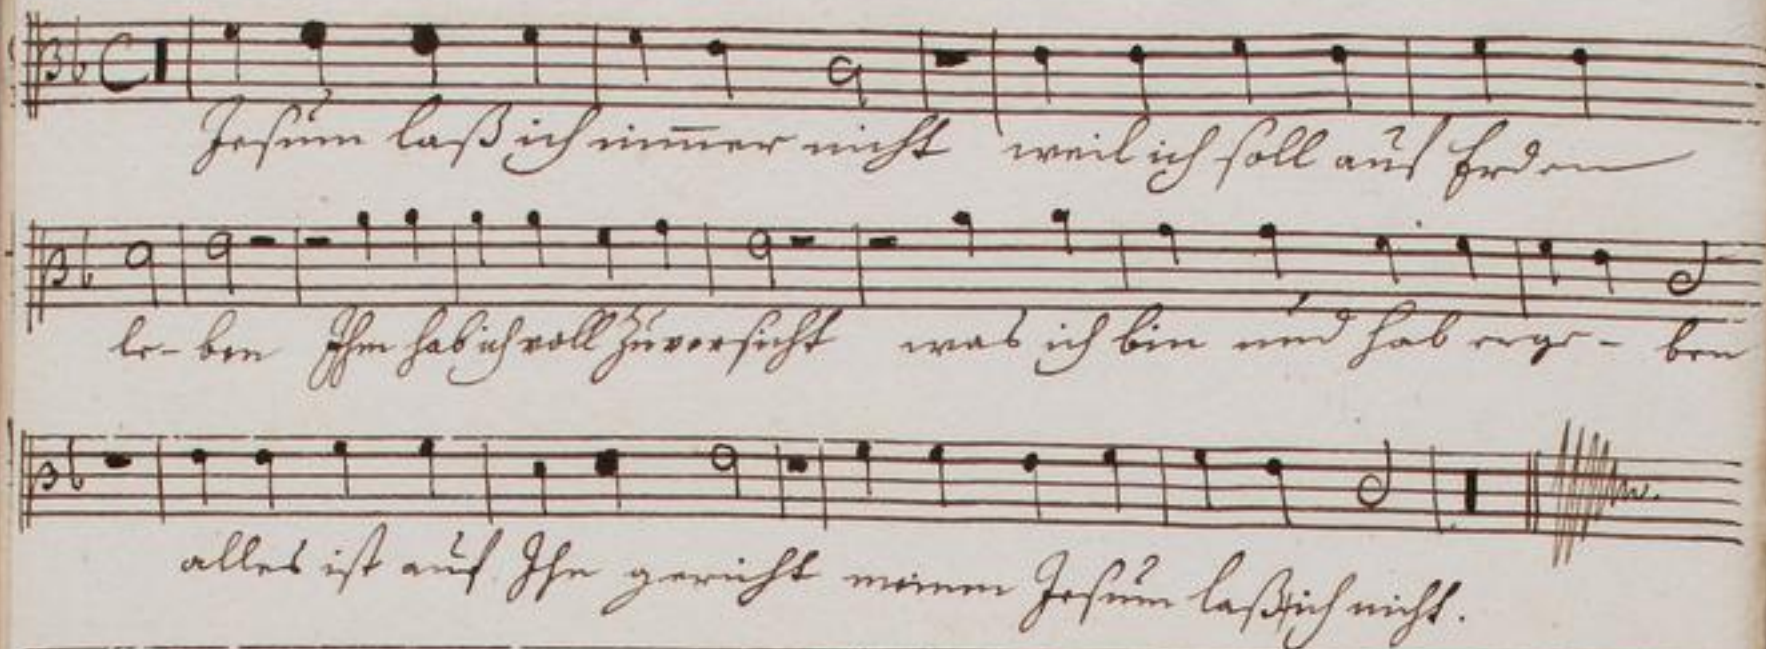 Jesum laß ich nim̅er nicht weil ich soll auf Erden
le- ben Ihm hab ich voll Zuversicht was ich bin und hab erge- ben
alles ist auf Ihn gericht meinen Jesum laß ich nicht.